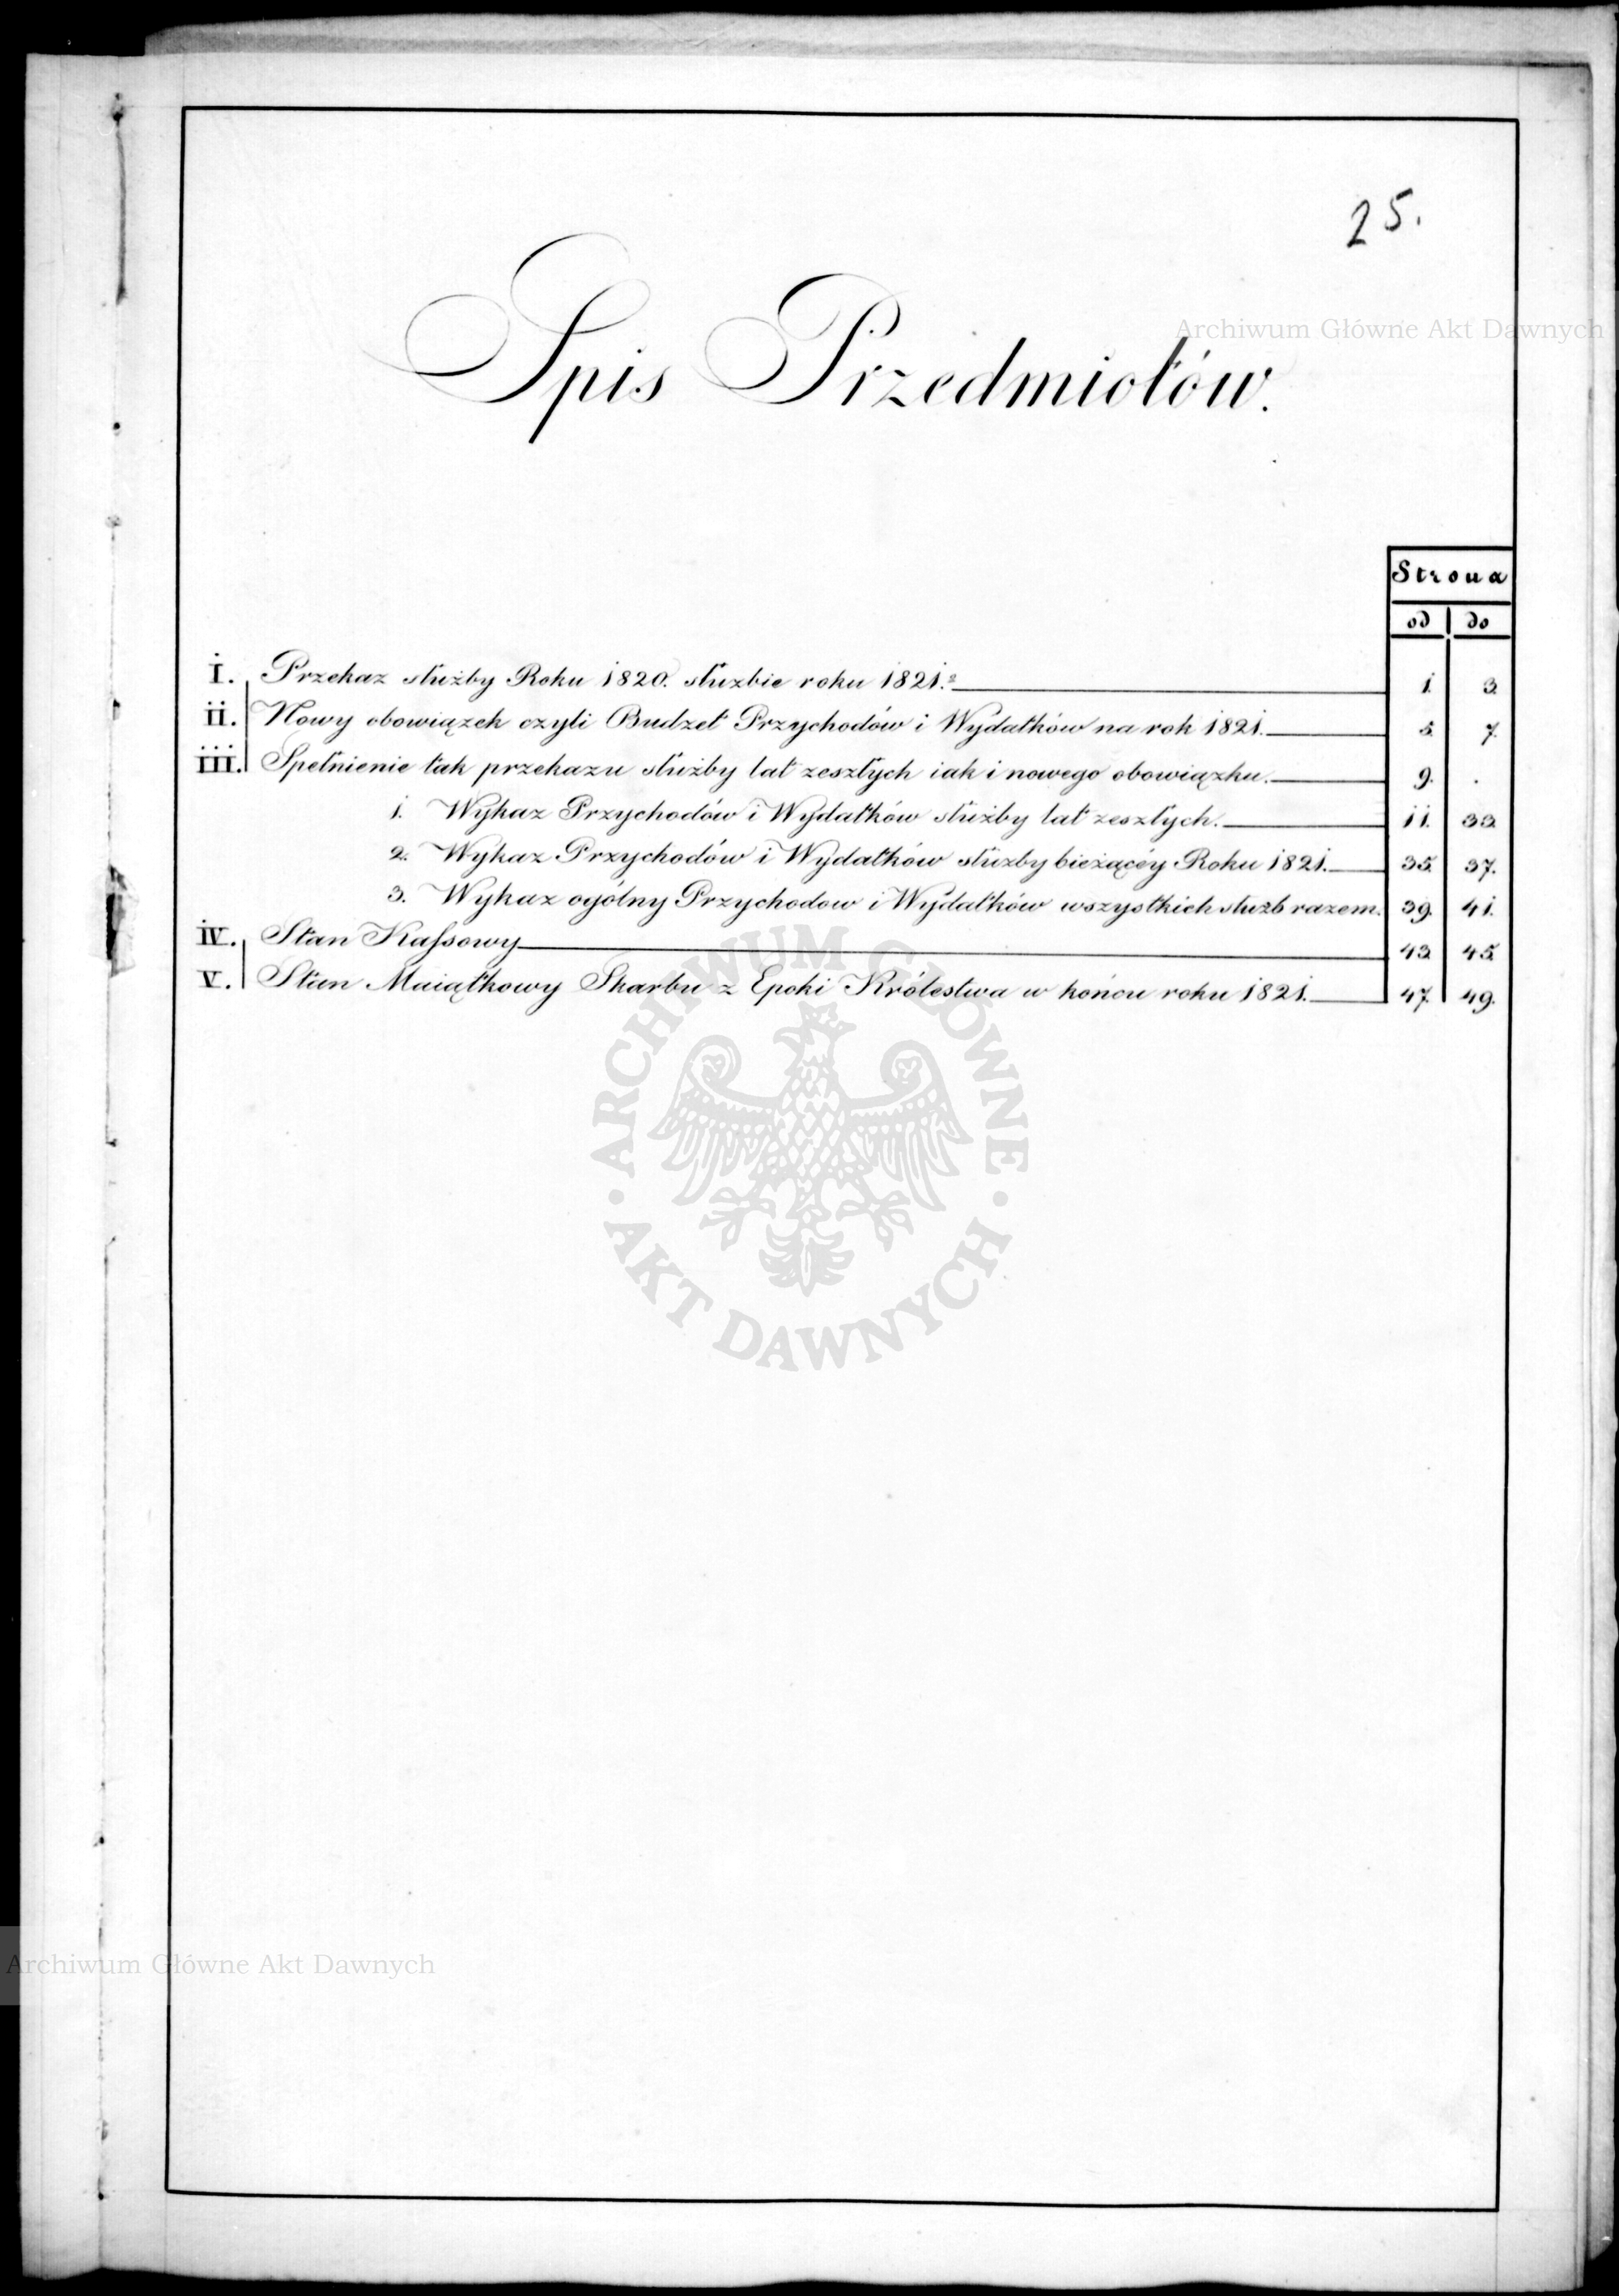 25.
Archiwum Główne Akt Dawnych
Spis Przedmiotów.
Strona
od do
I. Przekaz służby Roku 1820. służbie roku 1821. 1. 3.
II. Nowy obowiązek czyli Budżet Przychodów i Wydatków na rok 1821. 5. 7.
III. Spełnienie tak przekazu służby lat zeszłych iak i nowego obowiązku. 9. .
1. Wykaz Przychodów i Wydatków służby lat zeszłych. 11. 33.
2. Wykaz Przychodów i Wydatków służby bieżącéy Roku 1821. 35. 37.
3. Wykaz ogólny Przychodow i Wydatków wszystkich służb razem. 39. 41.
IV. Stan Kassowy 43. 45.
V. Stan Maiątkowy Skarbu z Epoki Królestwa w końcu roku 1821. 47. 49.
ARCHIWUM GŁÓWNE
AKT DAWNYCH
Archiwum Główne Akt Dawnych